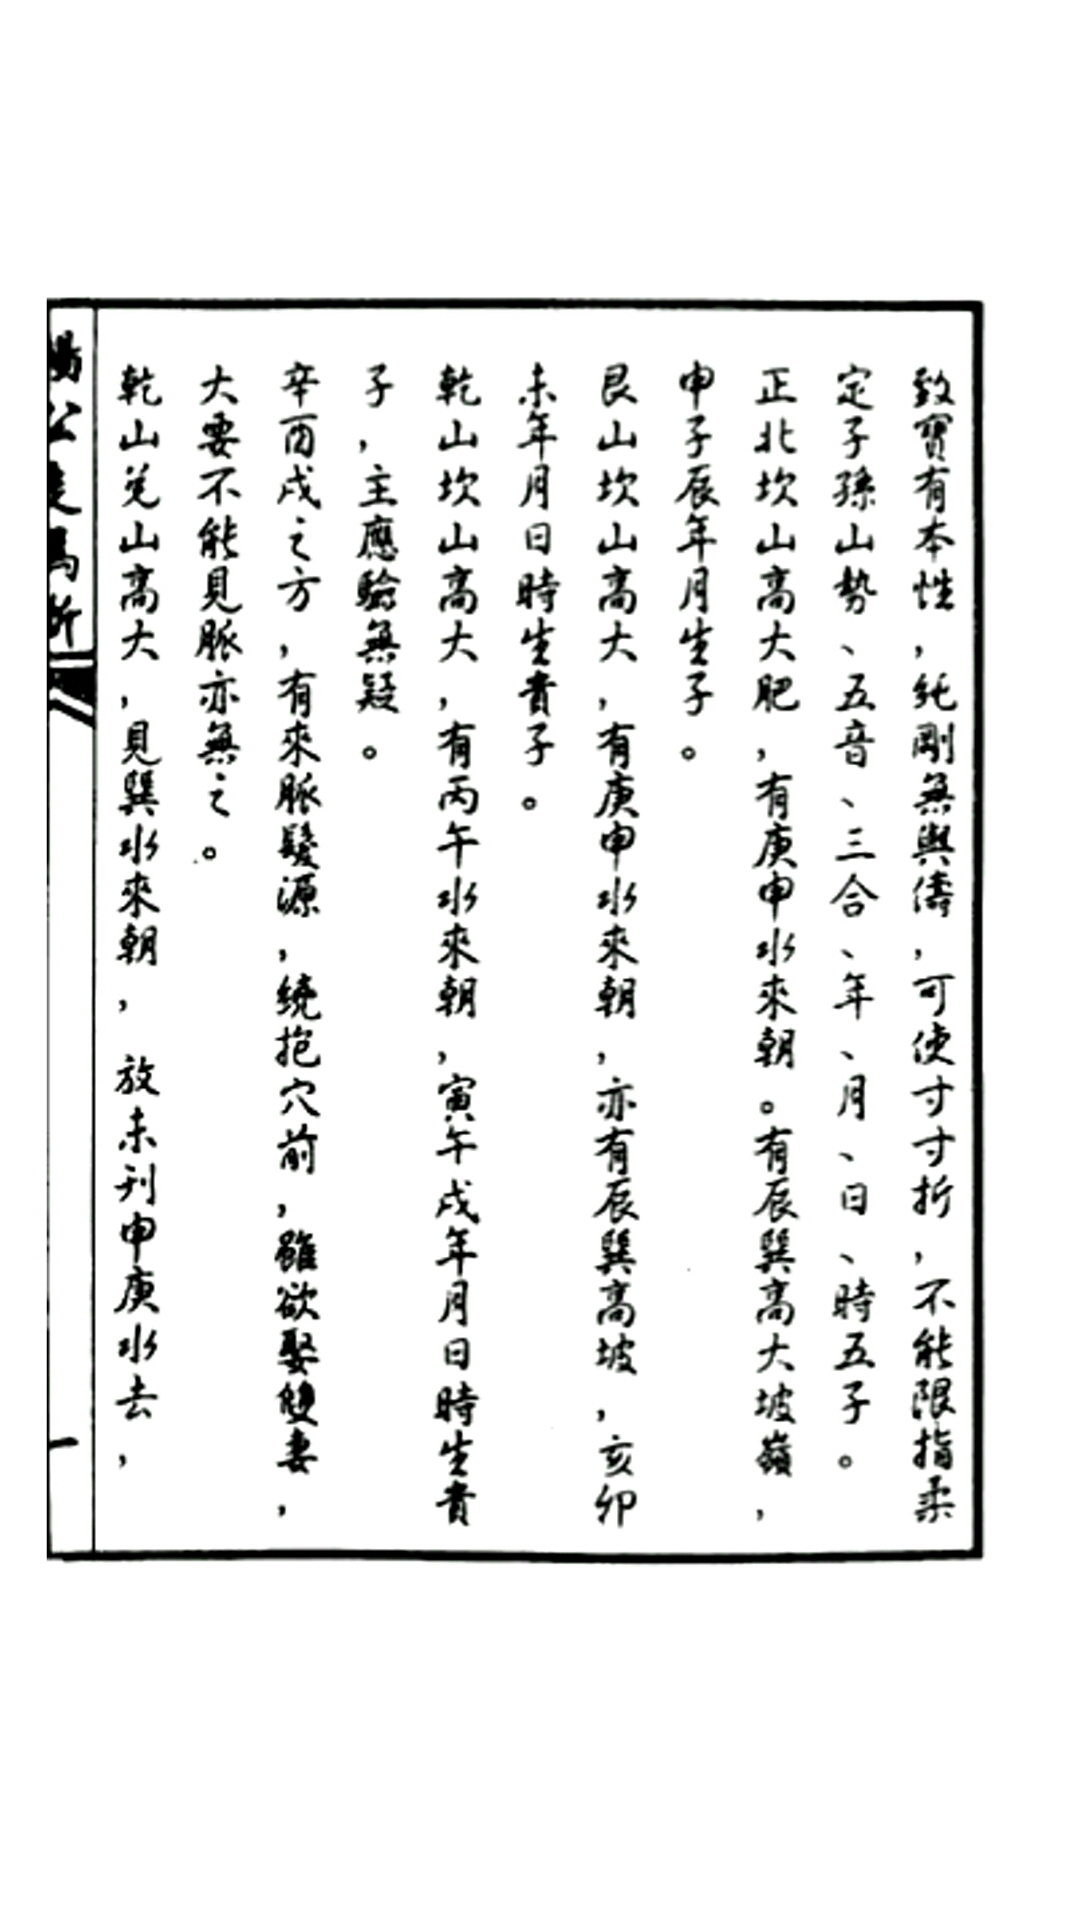 致寶有本性，純剛無與儔，可使寸寸折，不能限指柔
定子孫山勢、五音、三合、年、月、日、時五子。
正北坎山高大肥，有庚申水來朝。有辰巽高大坡嶺，
申子辰年月生子。
艮山坎山高大，有庚申水來朝，亦有辰巽高坡，亥卯
未年月日時生貴子。
乾山坎山高大，有丙午水來朝，寅午戌年月日時生貴
子，主應驗無疑。
辛酉戌之方，有來脈髮源，繞抱穴前，雖欲娶雙妻，
大要不能見脈亦無之。
乾山兌山高大，見巽水來朝，放未刊申庚水去，
楊公
一